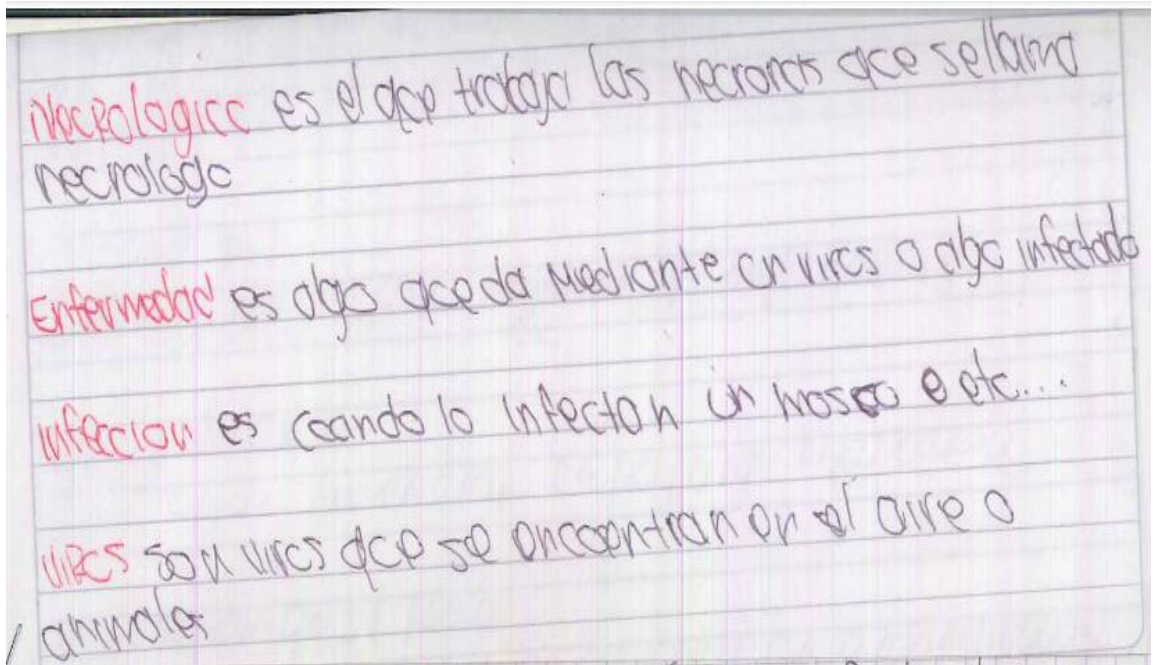 Neurologico es el que trabaja las neuronas que se llama
neurologo
Enfermedad es algo que da mediante un virus o algo infectado
infeccion es cuando lo infectan un mosco e etc...
virus son virus que se encuentran en el aire o
animales